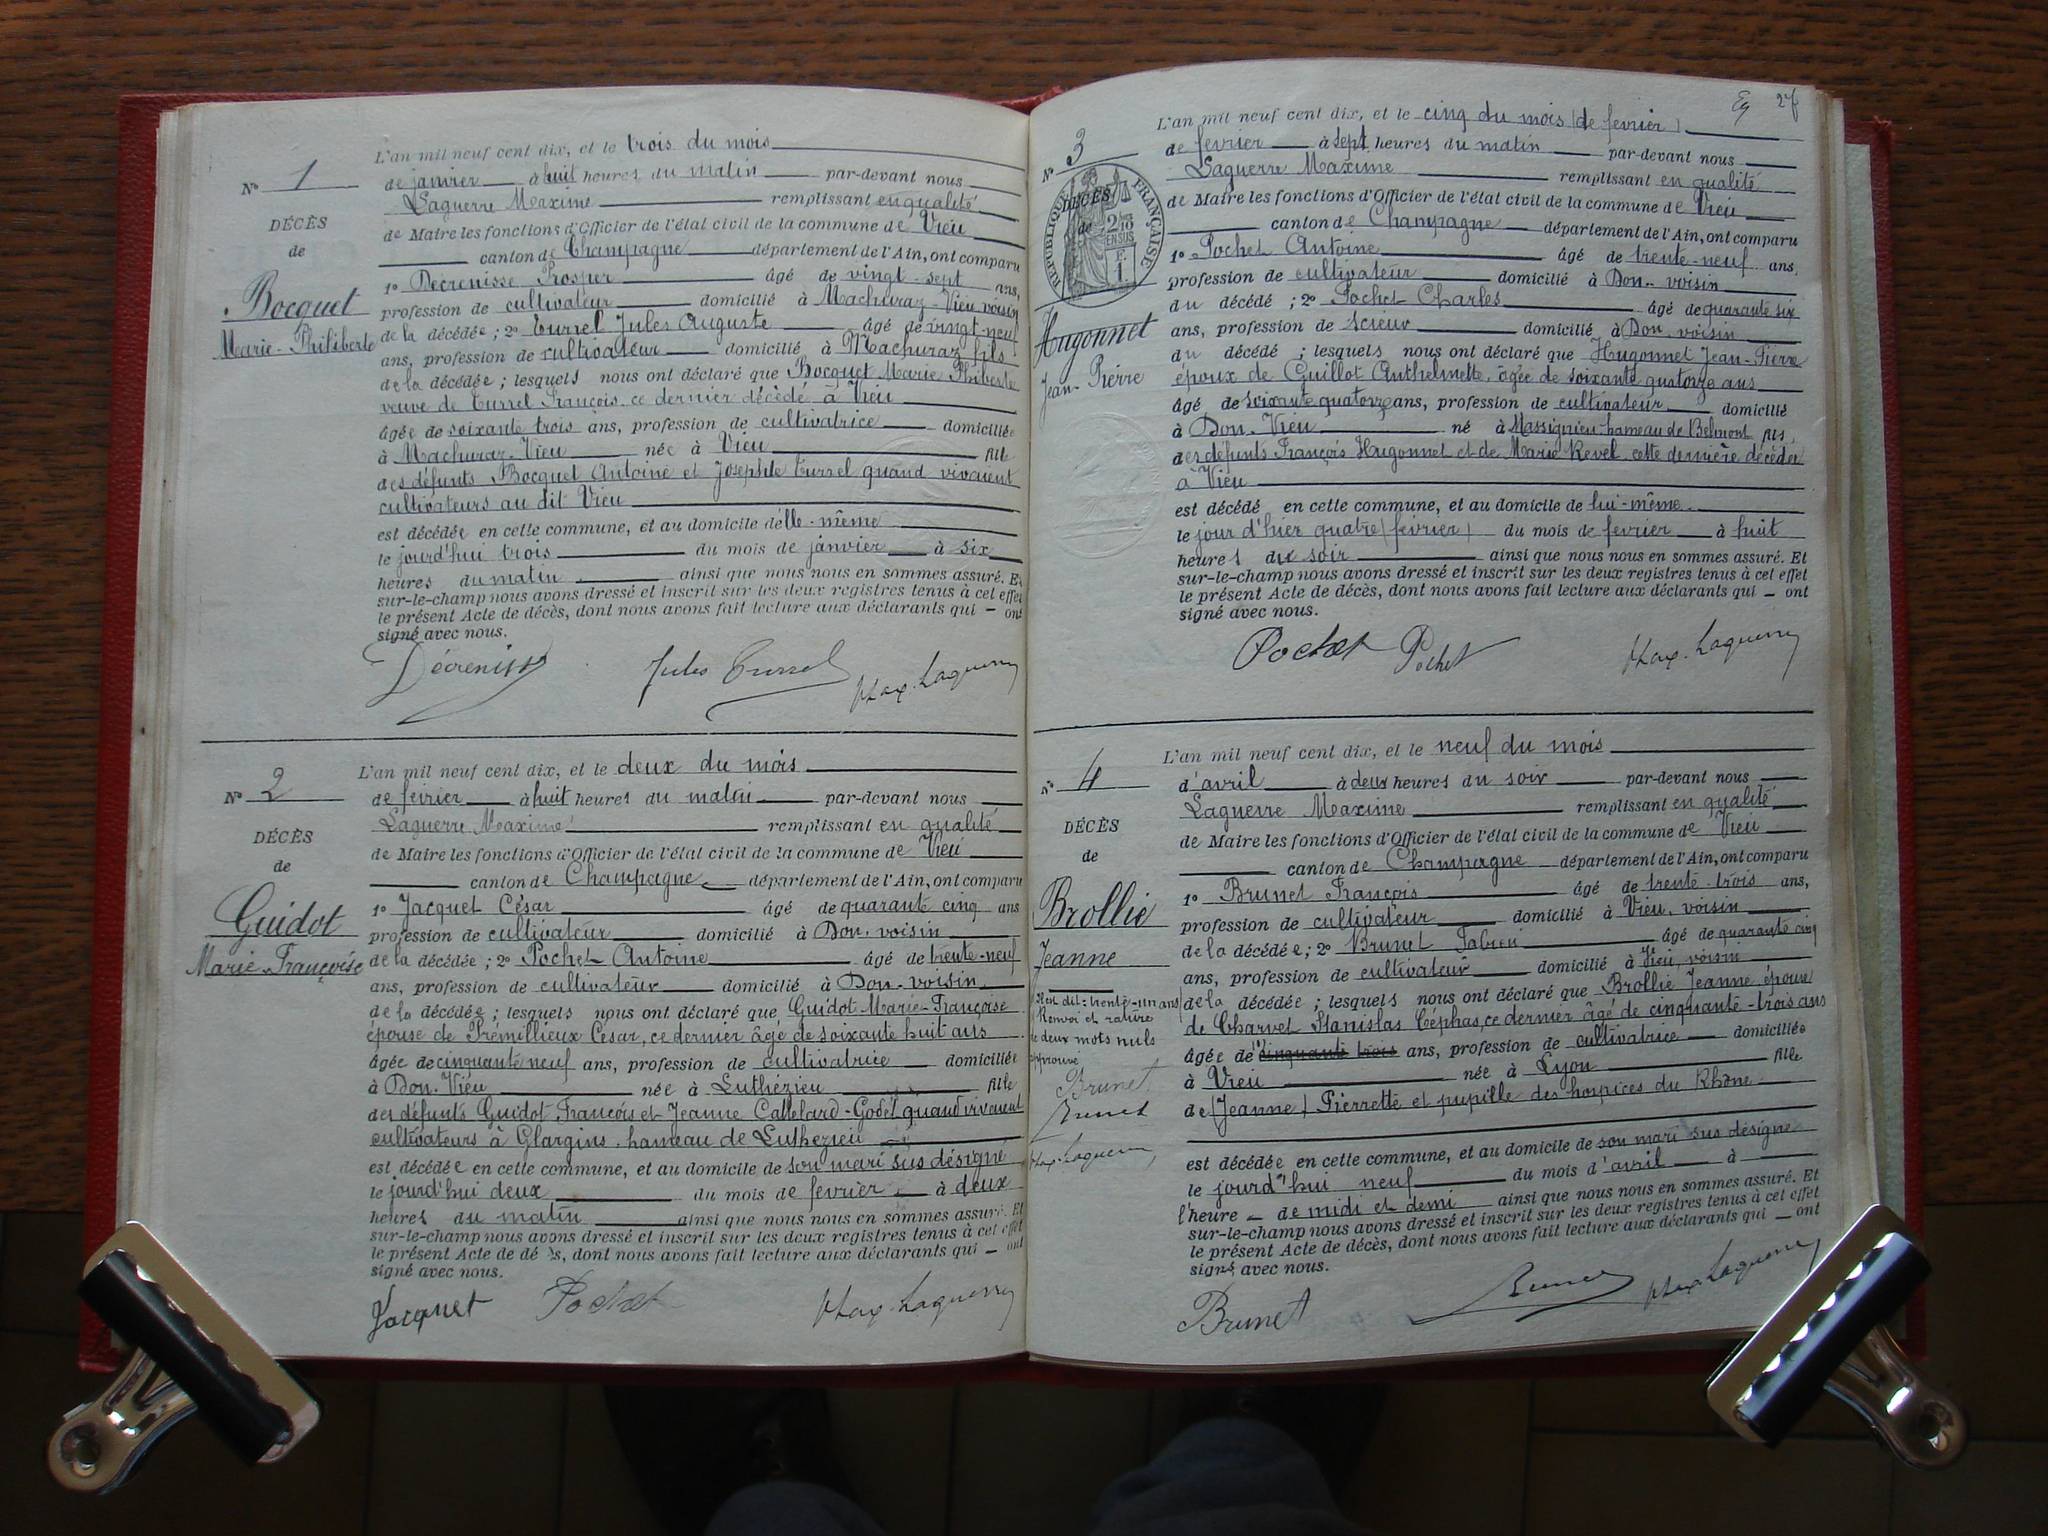 L'an mil neuf cent dix, et le trois du mois
de janvier à huit heures du matin par-devant nous
Laguerre Maxime remplissant en qualité
de Maire les fonctions d'Officier de l'état civil de la commune de Vieu
canton de Champagne département de l'Ain, ont comparu
1º Décrenisse Prosper âgé de vingt-sept ans,
profession de cultivateur domicilié à Machuraz-Vieu voisin
de la décédée ; 2º Turrel Jules Auguste âgé de vingt-neuf
ans, profession de cultivateur domicilié à Machuraz fils
de la décédée ; lesquels nous ont déclaré que Bocquet Marie Philiberte
veuve de Turrel François ce dernier décédé à Vieu
âgée de soixante trois ans, profession de cultivatrice domiciliée
à Machuraz-Vieu née à Vieu fille
des défunts Bocquet Antoine et Josephte Turrel quand vivaient
cultivateurs au dit Vieu
est décédée en cette commune, et au domicile d'elle-même
le jourd'hui trois du mois de janvier à six
heures du matin ainsi que nous nous en sommes assuré. Et
sur-le-champ nous avons dressé et inscrit sur les deux registres tenus à cet effet
le présent Acte de décès, dont nous avons fait lecture aux déclarants qui ont
signé avec nous.
Décrenisse Jules Turrel Max. Laguerre
Nº 1
DÉCÈS
de
Bocquet
Marie-Philiberte
L'an mil neuf cent dix, et le deux du mois
de fevrier à huit heures du matin par-devant nous
Laguerre Maxime remplissant en qualité
de Maire les fonctions d'Officier de l'état civil de la commune de Vieu
canton de Champagne département de l'Ain, ont comparu
1º Jacquet César âgé de quarante cinq ans
profession de cultivateur domicilié à Don. voisin
de la décédée ; 2º Pochet Antoine âgé de trente-neuf
ans, profession de cultivateur domicilié à Don-voisin
de la décédée ; lesquels nous ont déclaré que Guidot Marie-Françoise
épouse de Prémillieux César, ce dernier âgé de soixante huit ans
âgée de cinquante neuf ans, profession de cultivatrice domiciliée
à Don. Vieu née à Luthézieu fille
des défunts Guidot François et Jeanne Cattelard-Godet quand vivaient
cultivateurs à Glargins. hameau de Luthezieu
est décédée en cette commune, et au domicile de son mari sus désigné
le jourd'hui deux du mois de fevrier à deux
heures du matin ainsi que nous nous en sommes assuré. Et
sur-le-champ nous avons dressé et inscrit sur les deux registres tenus à cet effet
le présent Acte de décès, dont nous avons fait lecture aux déclarants qui ont
signé avec nous.
Jacquet Pochet Max. Laguerre
Nº 2
DÉCÈS
de
Guidot
Marie-Françoise
27
L'an mil neuf cent dix, et le cinq du mois (de fevrier)
de fevrier à sept heures du matin par-devant nous
Laguerre Maxime remplissant en qualité
de Maire les fonctions d'Officier de l'état civil de la commune de Vieu
canton de Champagne département de l'Ain, ont comparu
1º Pochet Antoine âgé de trente-neuf ans,
profession de cultivateur domicilié à Don-voisin
du décédé ; 2º Pochet Charles âgé de quarante six
ans, profession de scieur domicilié à Don. voisin
du décédé ; lesquels nous ont déclaré que Hugonnet Jean-Pierre
époux de Guillot Anthelmette, âgée de soixante quatorze ans
âgé de soixante quatorze ans, profession de cultivateur domicilié
à Don-Vieu né à Massignieu-hameau de Belmont fils
des défunts François Hugonnet et de Marie Revel cette dernière décédée
à Vieu
est décédé en cette commune, et au domicile de lui-même
le jour d'hier quatre (fevrier) du mois de fevrier à huit
heures du soir ainsi que nous nous en sommes assuré. Et
sur-le-champ nous avons dressé et inscrit sur les deux registres tenus à cet effet
le présent Acte de décès, dont nous avons fait lecture aux déclarants qui ont
signé avec nous.
Pochet Pochet Max. Laguerre
Nº 3
DÉCÈS
de
RÉPUBLIQUE FRANÇAISE
2/10
EN SUS
F.
1
Hugonnet
Jean-Pierre
L'an mil neuf cent dix, et le neuf du mois
d'avril à deux heures du soir par-devant nous
Laguerre Maxime remplissant en qualité
de Maire les fonctions d'Officier de l'état civil de la commune de Vieu
canton de Champagne département de l'Ain, ont comparu
1º Brunet François âgé de trente-trois ans,
profession de cultivateur domicilié à Vieu, voisin
de la décédée ; 2º Brunet Fabien âgé de quarante cinq
ans, profession de cultivateur domicilié à Vieu, voisin
de la décédée ; lesquels nous ont déclaré que Brollie Jeanne épouse
de Charvet Stanislas Céphas, ce dernier âgé de cinquante-trois ans
âgée de cinquante trois ans, profession de cultivatrice domiciliée
à Vieu née à Lyon fille
de (Jeanne) Pierrette et pupille des hospices du Rhône
est décédée en cette commune, et au domicile de son mari sus désigné
le jourd'hui neuf du mois d'avril à
l'heure de midi et demi ainsi que nous nous en sommes assuré. Et
sur-le-champ nous avons dressé et inscrit sur les deux registres tenus à cet effet
le présent Acte de décès, dont nous avons fait lecture aux déclarants qui ont
signé avec nous.
Brunet Brunet Max. Laguerre
Nº 4
DÉCÈS
de
Brollie
Jeanne
dit: trente-un ans
Renvoi et rature
de deux mots nuls
approuvé
Brunet
Brunet
Max. Laguerre